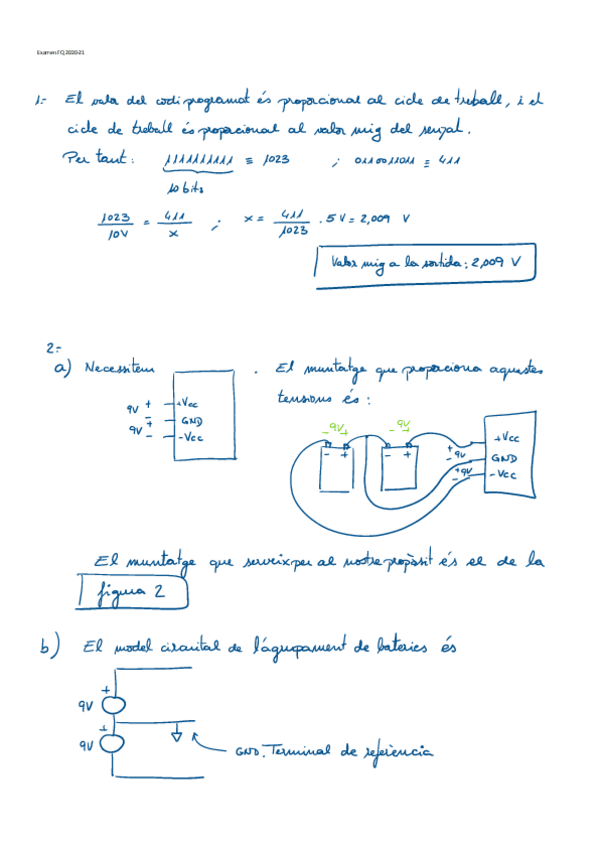 Examen FQ 2020-21
1.- El valor del codi programat és proporcional al cicle de treball, i el
cicle de treball és proporcional al valor mig del senyal.
Per tant: 1111111111 ≡ 1023 ; 0110011011 ≡ 411
10 bits
1023/10V = 411/x ; x = 411/1023 . 5V = 2,009 V
Valor mig a la sortida: 2,009 V
2.-
a) Necessitem . El muntatge que proporciona aquestes
tensions és:
9V + +Vcc
- + GND
9V - -Vcc
-9V+ -9V+
- + - +
+ 9V - +Vcc
GND
+ 9V - -Vcc
El muntatge que serveix per al nostre propòsit és el de la
figura 2
b) El model circuital de l'agrupament de bateries és
+
9V
+
9V
GND. Terminal de referència